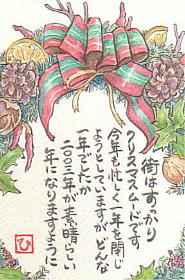 街はすっかり
クリスマスムードです
今年も忙しく一年を閉じ
ようとしていますが どんな
一年でしたか
二〇〇三年が素晴らしい
年になりますように
ひ